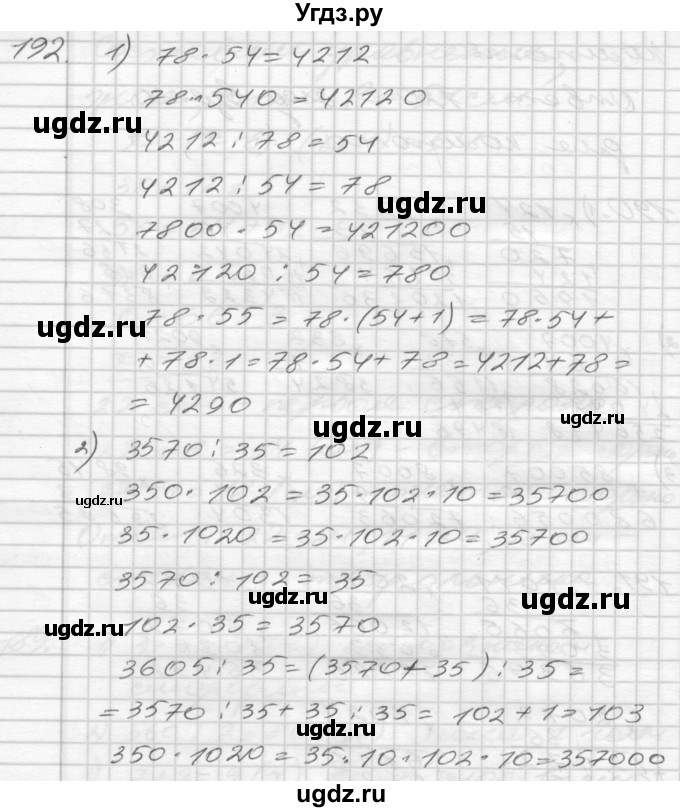 Угдз.ру
192. 1) 78 · 54 = 4212
78 · 540 = 42120
ugdz.ru
4212 : 78 = 54
4212 : 54 = 78
ugdz.ru
7800 · 54 = 421200
42120 : 54 = 780
ugdz.ru
78 · 55 = 78 · (54+1) = 78 · 54 +
+ 78 · 1 = 78 · 54 + 78 = 4212 + 78 =
= 4290
ugdz.ru
ugdz.ru
2) 3570 : 35 = 102
ugdz.ru
350 · 102 = 35 · 102 · 10 = 35700
35 · 1020 = 35 · 102 · 10 = 35700
3570 : 102 = 35
ugdz.ru
ugdz.ru
ugdz.ru
102 · 35 = 3570
3605 : 35 = (3570 + 35) : 35 =
= 3570 : 35 + 35 : 35 = 102 + 1 = 103
ugdz.ru
ugdz.ru
350 · 1020 = 35 · 10 · 102 · 10 = 357000
ugdz.ru
ugdz.ru